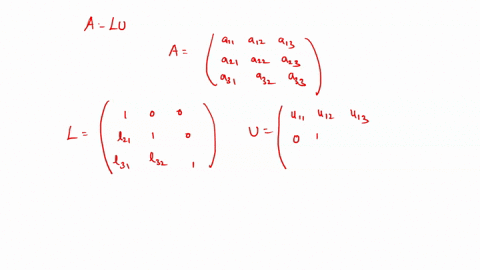 A = LU
A = ( a11 a12 a13
a21 a22 a23
a31 a32 a33 )
L = ( 1 0 0
l21 1 0
l31 l32 1 )
U = ( u11 u12 u13
0 1